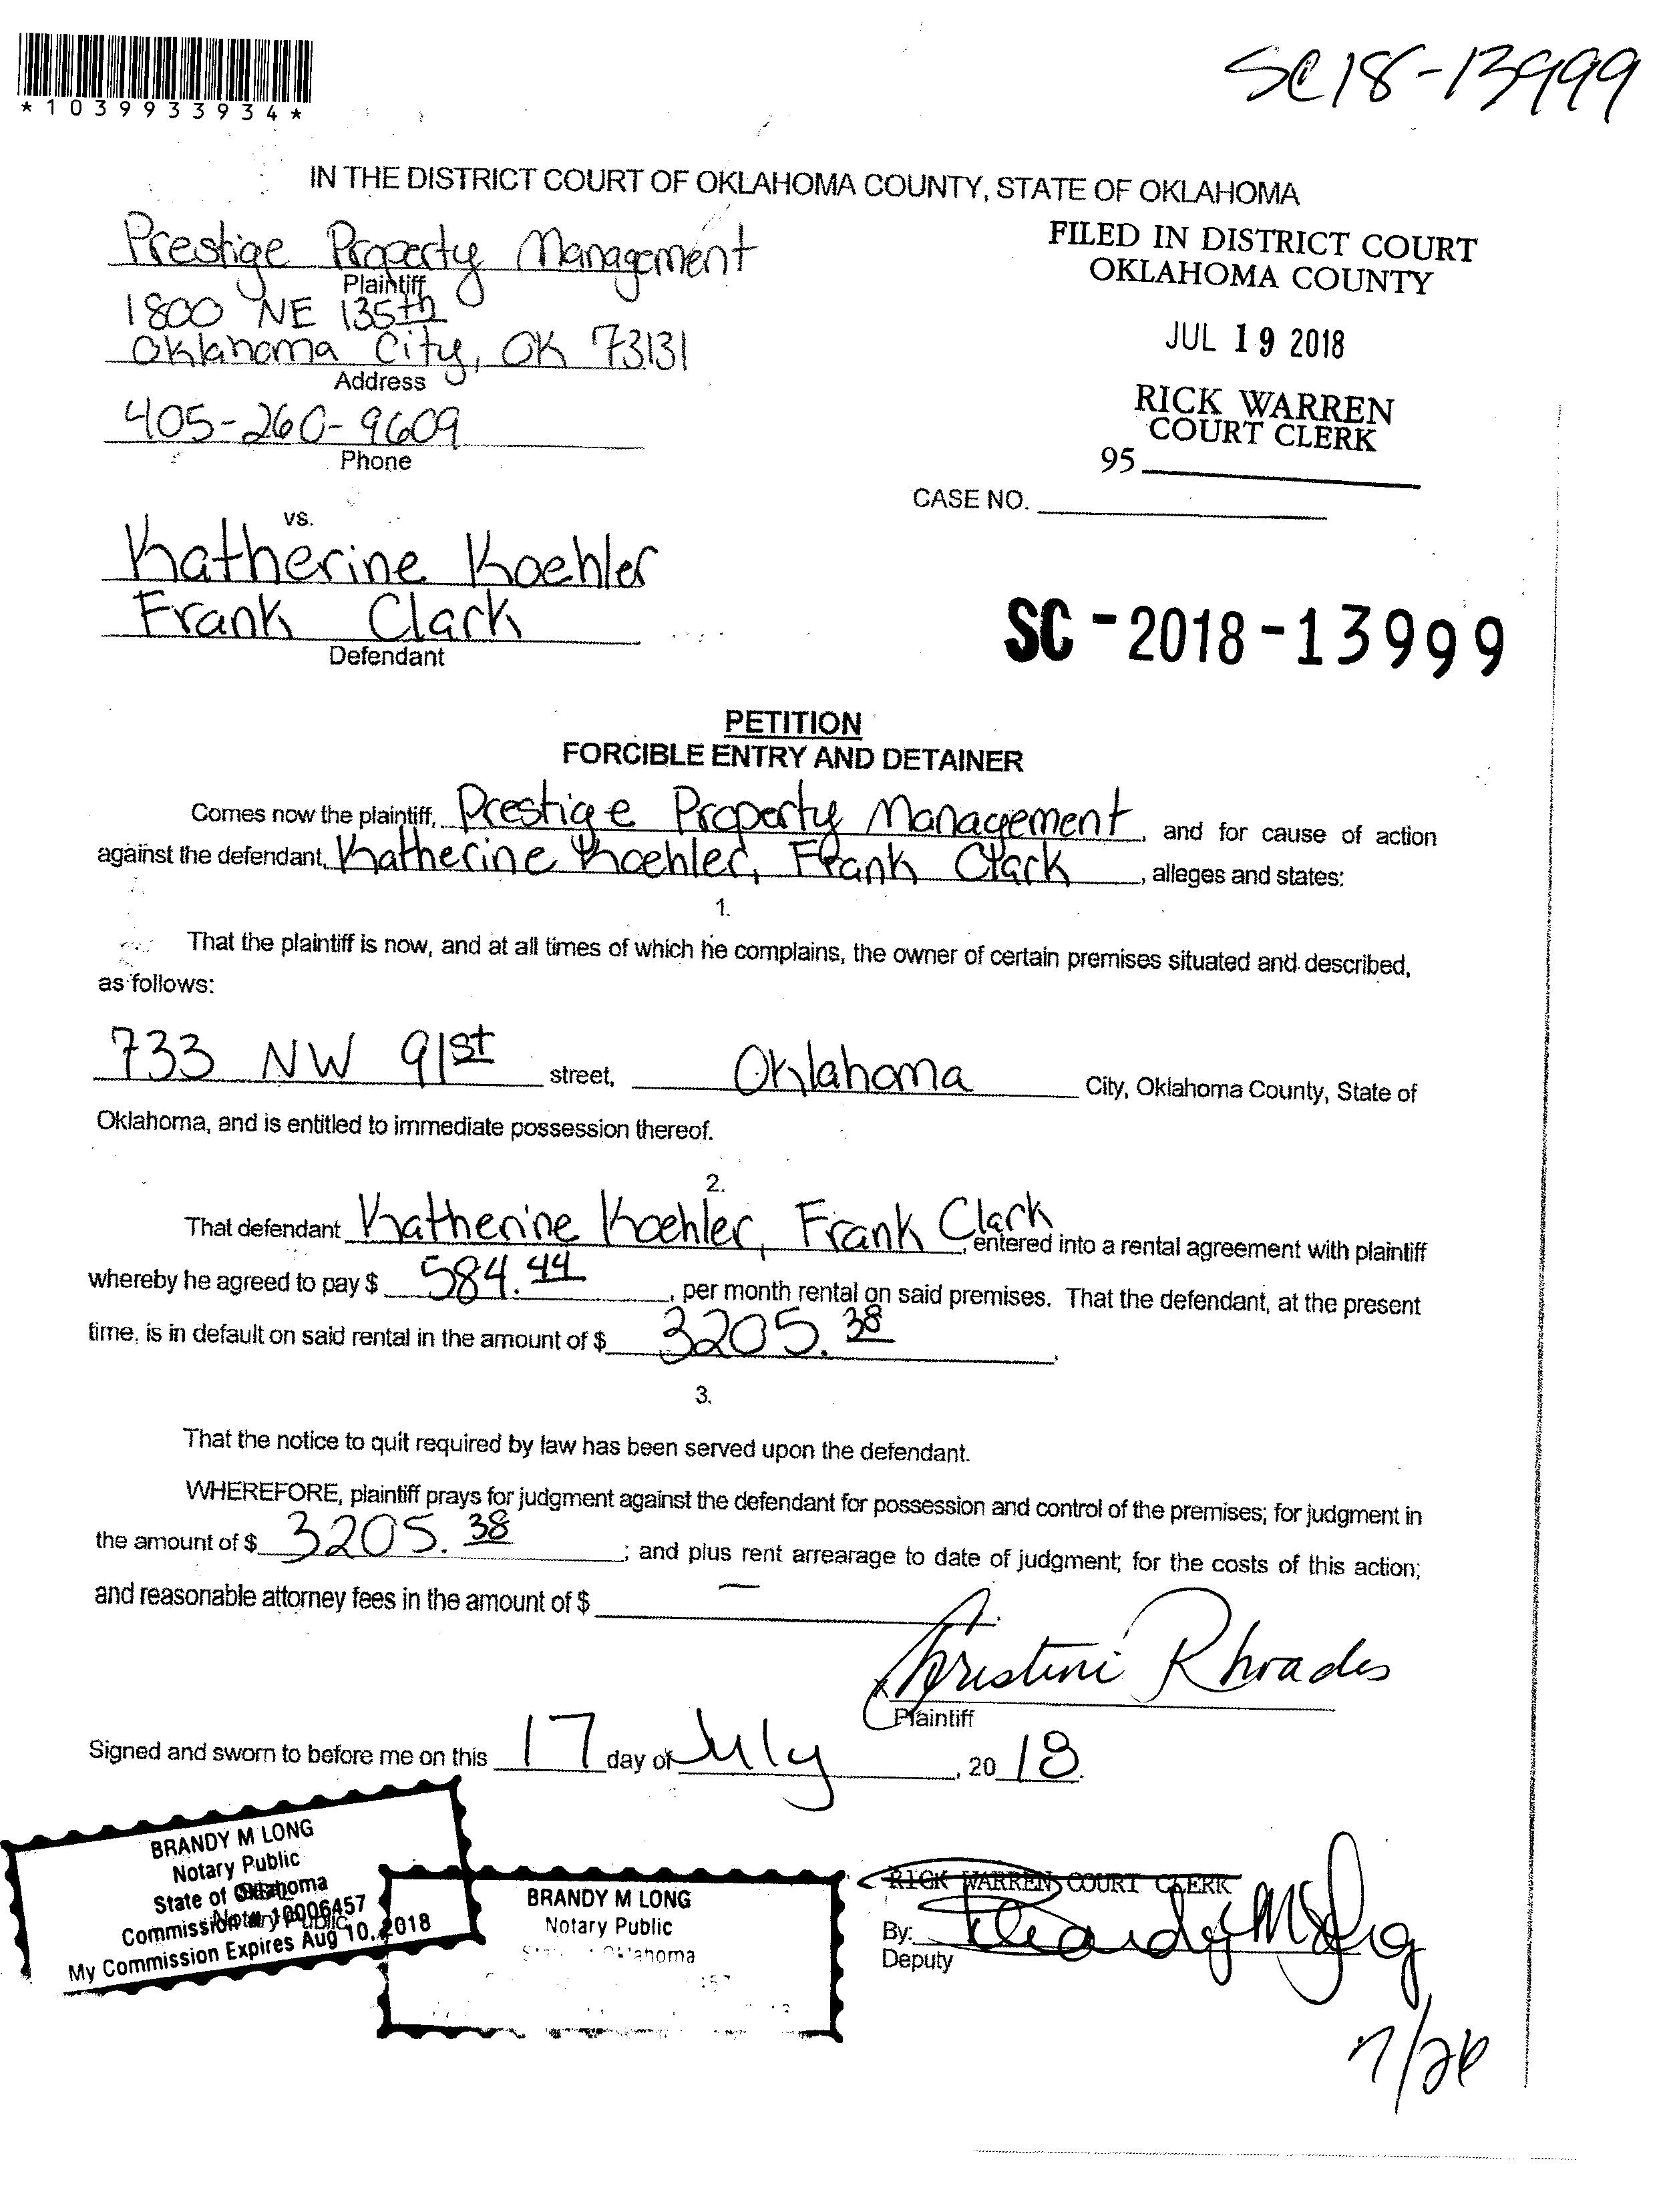 *1039933934*
SC18-13999
IN THE DISTRICT COURT OF OKLAHOMA COUNTY, STATE OF OKLAHOMA
Prestige Property Management
Plaintiff
1800 NE 135th
Oklahoma City, OK 73131
Address
405-260-9609
Phone
FILED IN DISTRICT COURT
OKLAHOMA COUNTY
JUL 19 2018
RICK WARREN
COURT CLERK
95
CASE NO.
vs.
Katherine Koehler
Frank Clark
Defendant
SC-2018-13999
PETITION
FORCIBLE ENTRY AND DETAINER
Comes now the plaintiff, Prestige Property Management, and for cause of action
against the defendant, Katherine Koehler, Frank Clark, alleges and states:
1.
That the plaintiff is now, and at all times of which he complains, the owner of certain premises situated and described,
as follows:
733 NW 91st street, Oklahoma City, Oklahoma County, State of
Oklahoma, and is entitled to immediate possession thereof.
2.
That defendant Katherine Koehler, Frank Clark, entered into a rental agreement with plaintiff
whereby he agreed to pay $ 584.44, per month rental on said premises. That the defendant, at the present
time, is in default on said rental in the amount of $ 3205.38.
3.
That the notice to quit required by law has been served upon the defendant.
WHEREFORE, plaintiff prays for judgment against the defendant for possession and control of the premises; for judgment in
the amount of $ 3205.38; and plus rent arrearage to date of judgment; for the costs of this action;
and reasonable attorney fees in the amount of $ —
Christine Rhoades
Plaintiff
Signed and sworn to before me on this 17 day of July, 2018.
BRANDY M LONG
Notary Public
State of Oklahoma
Commission # 10006457
My Commission Expires Aug 10, 2018
BRANDY M LONG
Notary Public
RICK WARREN COURT CLERK
By: Brandy M Long
Deputy